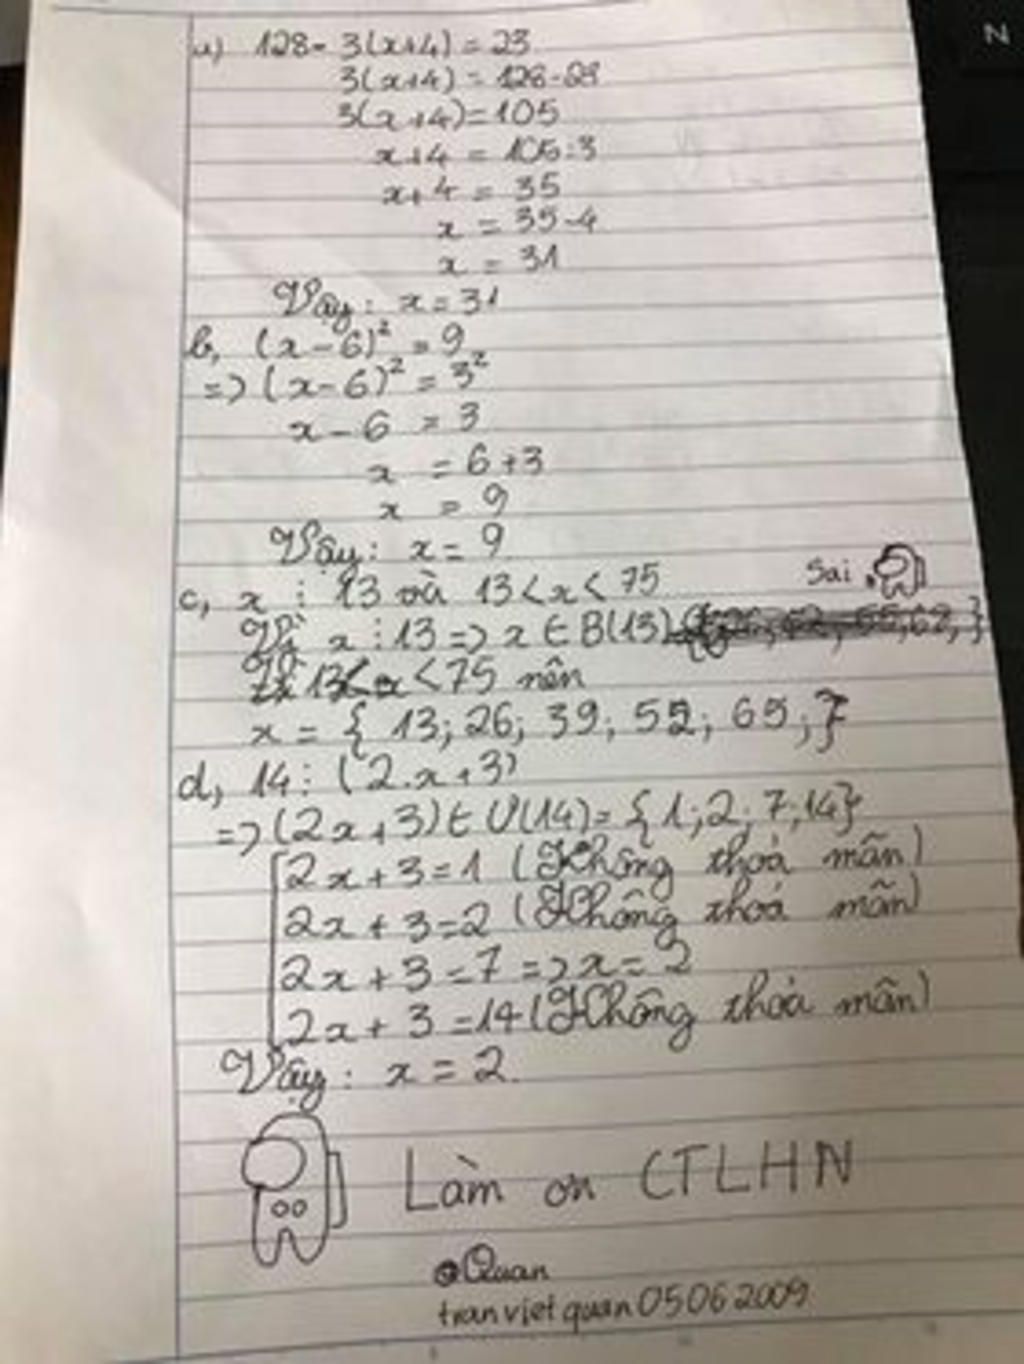 N
a) 128 - 3(x+4) = 23
3(x+4) = 128-23
3(x+4)=105
x+4 = 105:3
x+4 = 35
x = 35-4
x = 31
Vậy: x = 31
b, (x-6)² = 9
=> (x-6)² = 3²
x - 6 = 3
x = 6+3
x = 9
Vậy: x = 9
c, x ⋮ 13 và 13<x<75 Sai
Vì x ⋮ 13 => x ∈ B(13)
13<x<75 nên
x = { 13; 26; 39; 52; 65; }
d, 14 ⋮ (2.x+3)
=> (2x+3) ∈ Ư(14) = {1;2;7;14}
2x+3=1 (Không thoả mãn)
2x+3=2 (Không thoả mãn)
2x+3=7 => x=2
2x+3=14 (Không thỏa mãn)
Vậy: x = 2.
Làm ơn CTLHN
Quan
tranvietquan05062009